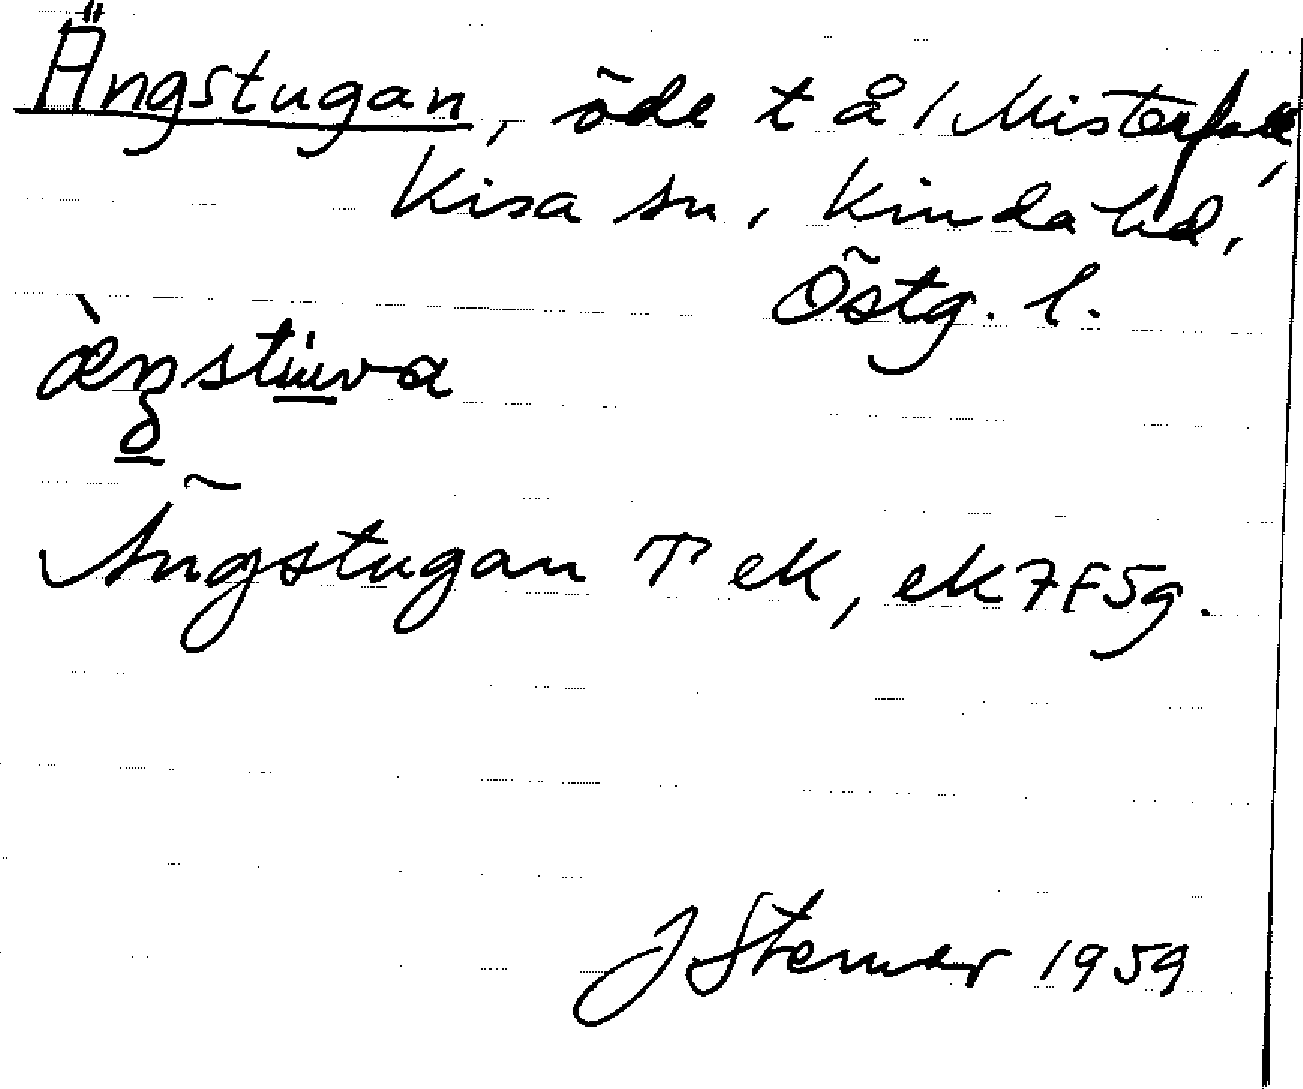 Ängstugan, öde t å 1 Misterfall,
Kisa sn, Kinda hd,
Östg. l.
Ängstugan T ek, ek 7F5g.
J Sterner 1959